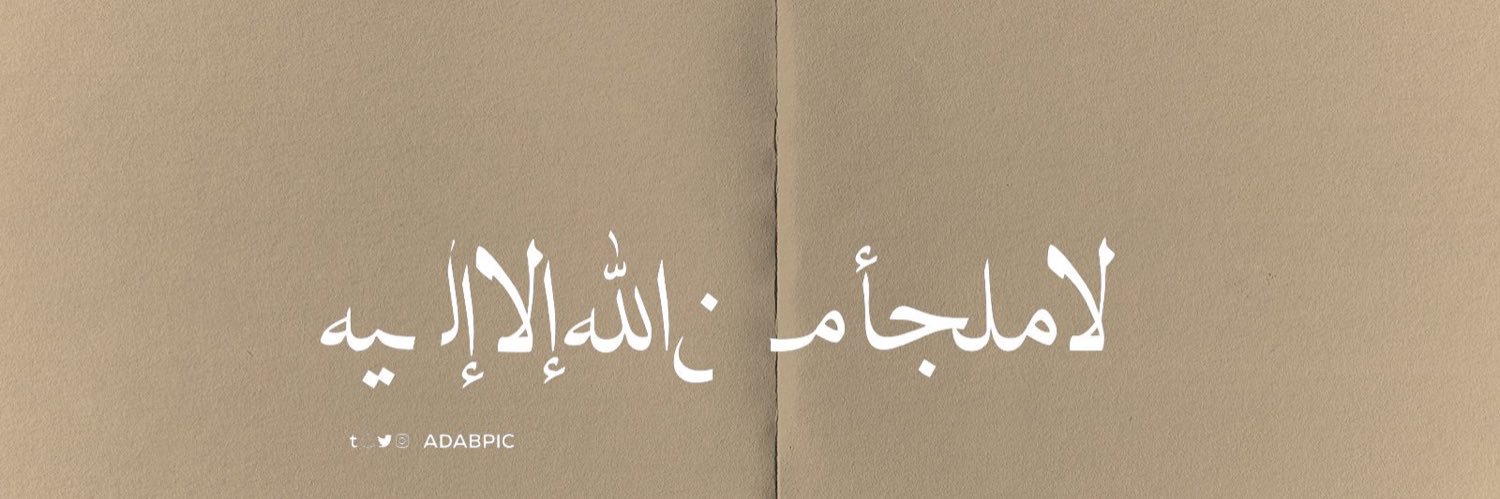 لا ملجأ من الله إلا إليه
t ADABPIC